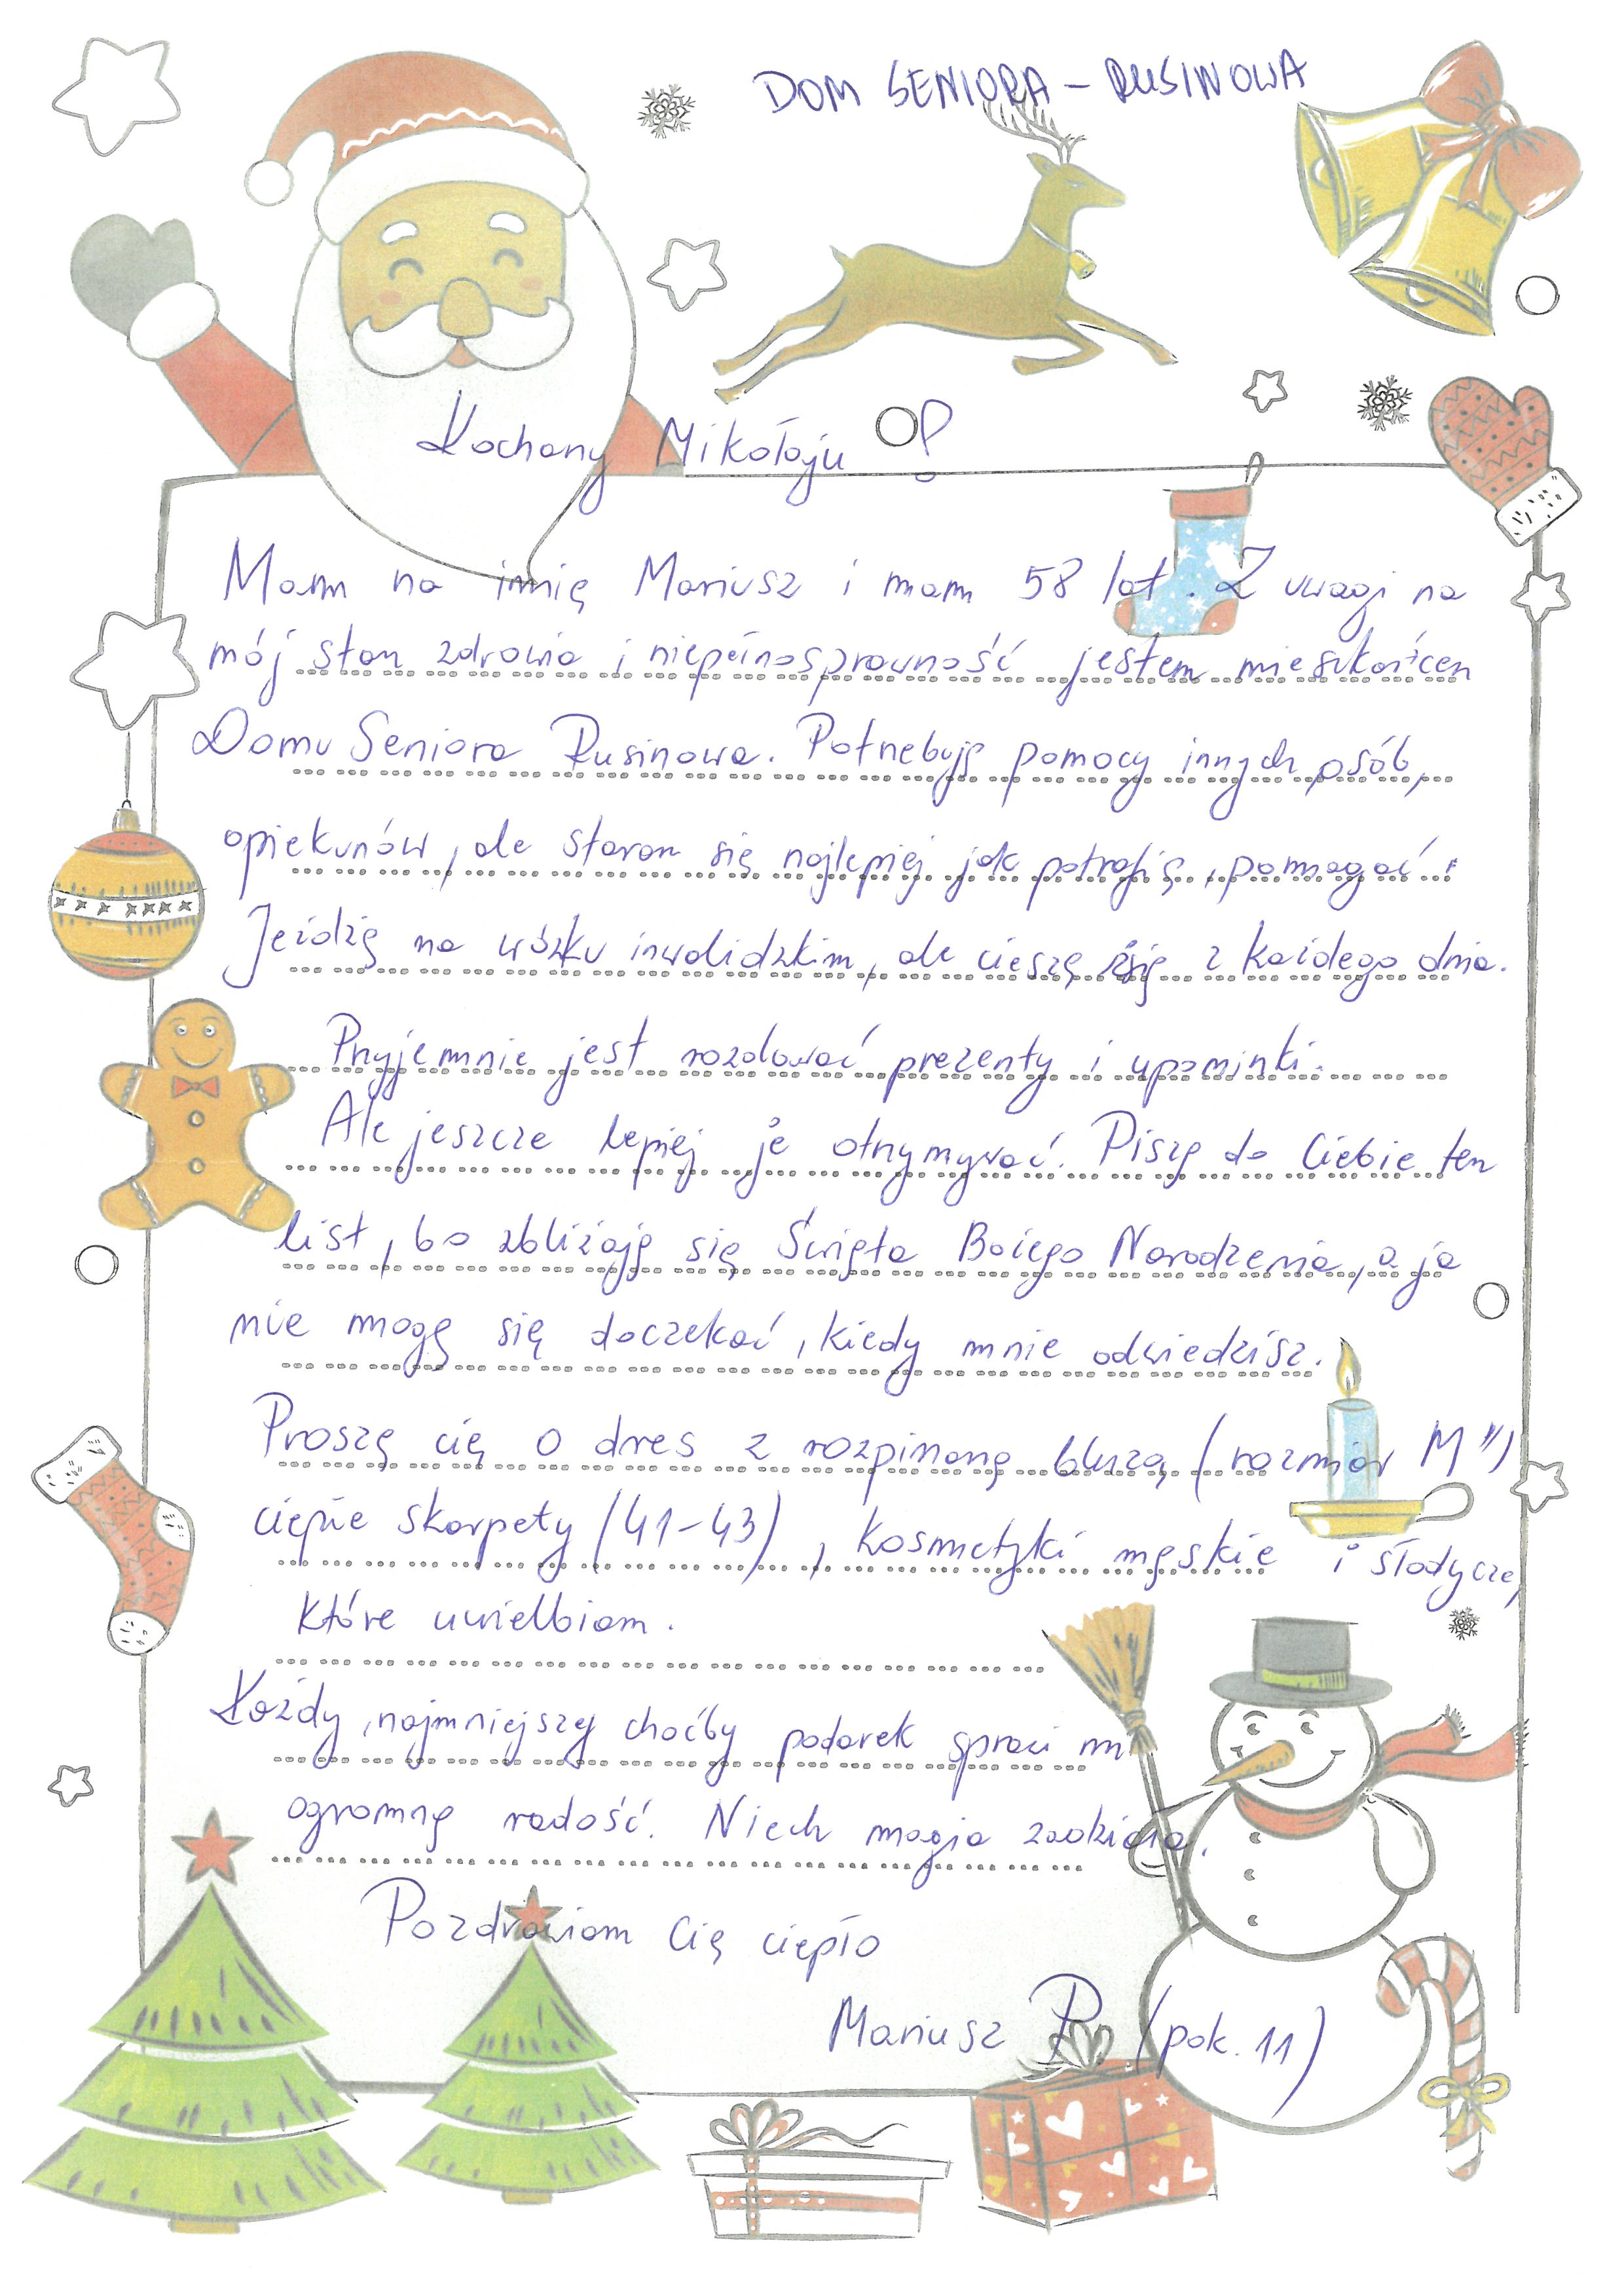 DOM SENIORA - RUSINOWA
Kochany Mikołaju!
Mam na imię Mariusz i mam 58 lat. Z uwagi na
mój stan zdrowia i niepełnosprawność jestem mieszkańcem
Domu Seniora Rusinowa. Potrzebuję pomocy innych osób,
opiekunów, ale staram się najlepiej jak potrafię, pomagać.
Jeżdżę na wózku inwalidzkim, ale cieszę się z każdego dnia.
Przyjemnie jest rozdawać prezenty i upominki.
Ale jeszcze lepiej je otrzymywać. Piszę do Ciebie ten
list, bo zbliżają się Święta Bożego Narodzenia, a ja
nie mogę się doczekać, kiedy mnie odwiedzisz.
Proszę cię o dres z rozpinaną bluzą (rozmiar M")
ciepłe skarpety (41-43), kosmetyki męskie i słodycze,
które uwielbiam.
Każdy, najmniejszy choćby podarek sprawi mi
ogromną radość. Niech magia zadziała.
Pozdrawiam Cię ciepło
Mariusz P. (pok. 11)